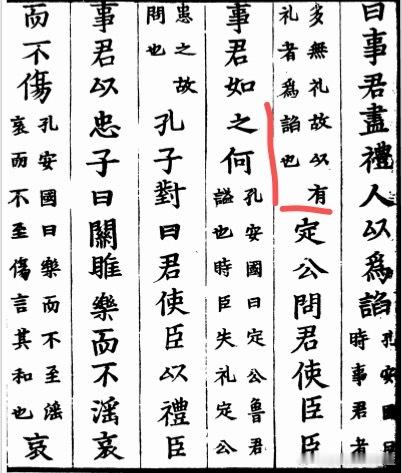 曰事君盡禮人以爲諂
孔安國曰
時事君者
多無礼故以有
礼者爲諂也
定公問君使臣臣
事君如之何
孔安國曰定公魯君
謚也時臣失礼定公
患之故
問也
孔子對曰君使臣以禮臣
事君以忠子曰關雎樂而不滛哀
而不傷
孔安國曰樂而不至滛
哀而不至傷言其和也
哀